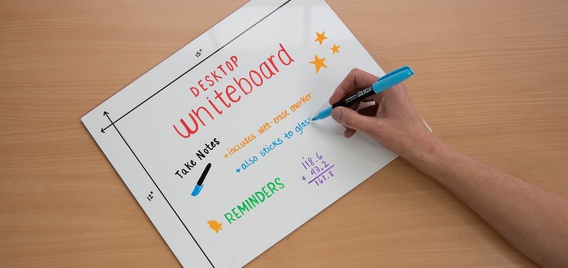 15"
DESKTOP
whiteboard
Take Notes
+includes wet-erase marker
+also sticks to glass
12"
REMINDERS
118.6
+ 43.2
161.8